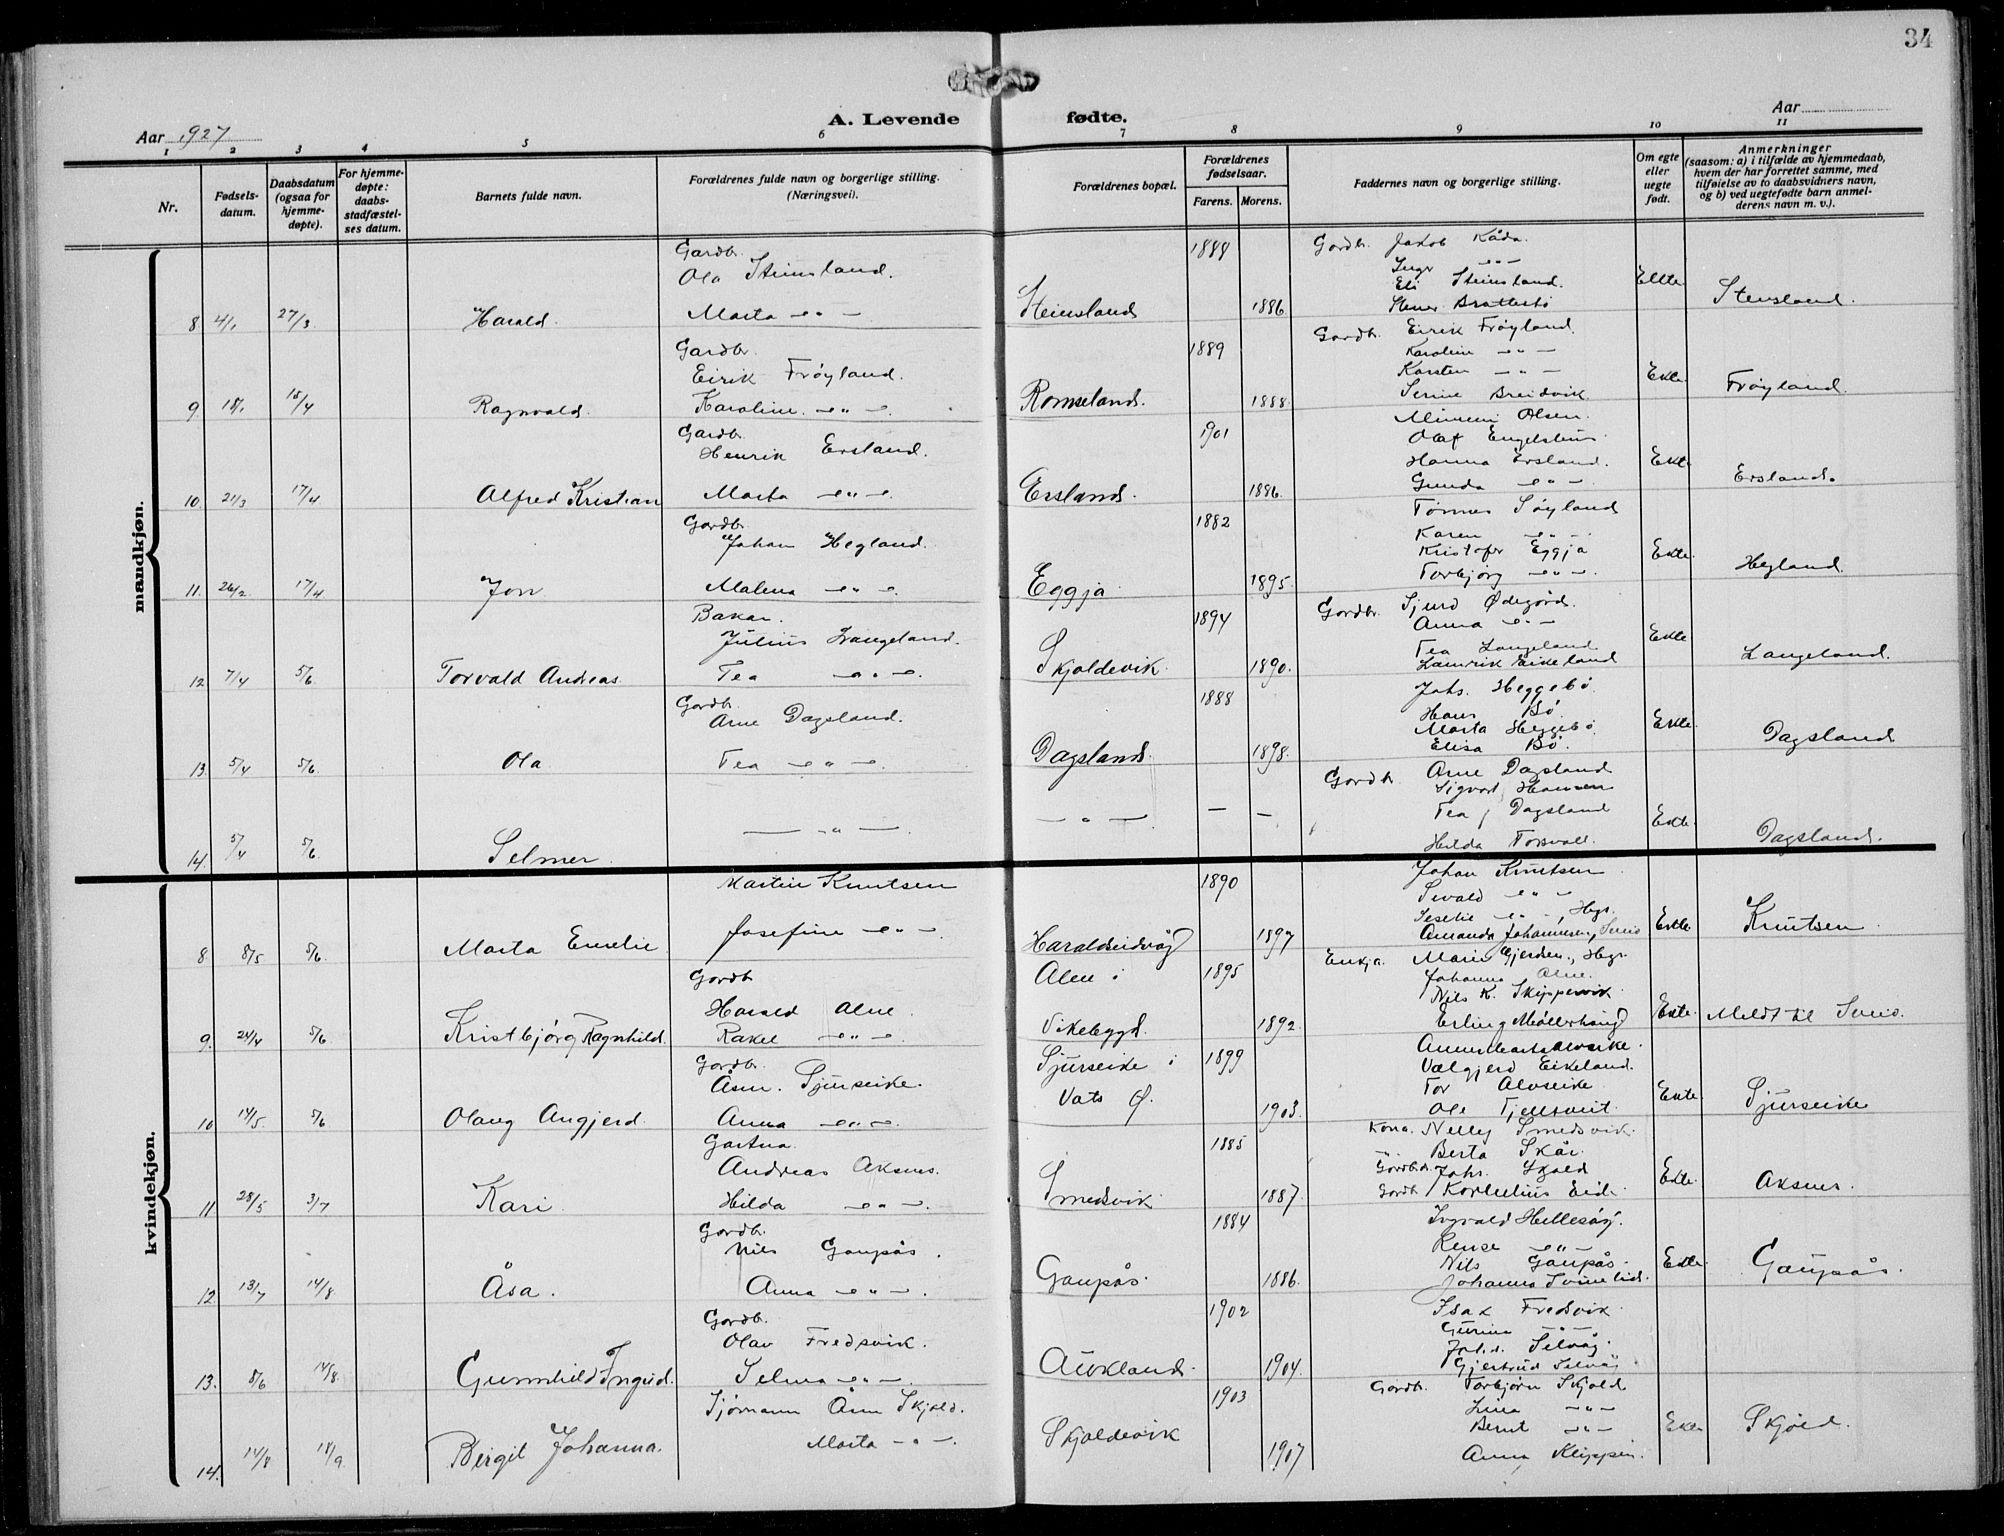 34
A. Levende fødte.
Aar 1927
Aar
1 2 3 4 5 6 7 8 9 10 11
Nr.
Fødsels-
datum.
Daabsdatum
(ogsaa for
hjemme-
døpte).
For hjemme-
døpte:
daabs-
stadfæstel-
ses datum.
Barnets fulde navn.
Forældrenes fulde navn og borgerlige stilling.
(Næringsvei).
Forældrenes bopæl.
Forældrenes
fødselsaar.
Farens. Morens.
Faddernes navn og borgerlige stilling.
Om egte
eller
uegte
født.
Anmerkninger
(saasom: a) i tilfælde av hjemmedaab,
hvem der har forrettet samme, med
tilføielse av to daabsvidners navn,
og b) ved uegtefødte barn anmel-
derens navn m. v.).
mandkjøn.
Gardbr. 1888 Gardbr. Jakob Kåda.
Ola Steinsland. Inga -"-
Eli Steinsland. Ekte
8 4/1 27/3 Harald. Marta -"- Steinsland 1886. Brattebø Stensland.
Gardbr. 1889 Gardbr. Eirik Frøyland.
Eirik Frøyland. Karoline -"-
Karsten -"- Ekte.
9. 18/1 18/4 Ragnvald. Karoline. -"- Romseland. 1888. Breidvik Frøyland.
Gardbr. 1901 Olsen.
Henrik Ersland. Olaf
Hanna Ersland. Ekte
10. 21/3 17/4 Alfred Kristian Marta -"- Ersland. 1886. Gunda -"- Ersland.
Gardbr. 1882 Søyland
Johan Hegland. Karen -"-
Kristofer Eggja Ekte.
11. 26/2 17/4 Jon Malena -"- Eggja 1895. Torbjørg -"- Hegland.
Bakar. 1894 Gardbr. Sjurd Ødegård.
Julius Langeland. Anna -"-
Tea Langeland Ekte
12 7/4 5/6 Torvald Andreas. Tea -"- Skjoldevik. 1890. Eikeland Langeland.
Gardbr. 1888 Johs. Heggebø.
Arne Dagsland. Hans Bø.
Marta Heggebø. Ekte.
13. 5/4 5/6 Ola Tea -"- Dagsland. 1898. Elisa Bø. Dagsland
Gardbr. Arne Dagsland
Sigvart Hansen
Tea Dagsland Ekte.
14. 5/4 5/6 Selmer. -"- -"- - - Hilda Torsvall. Dagsland.
kvindekjøn.
Martin Knutsen 1890 Johan Knutsen
Sevald -"-
-"-, Hgs. Ekte.
8 8/5 5/6 Marta Emelie Josefine -"- Haraldseidvåg 1897 Amanda Johannesen, Sveio Knutsen.
Gardbr Alne i 1895 Enkja. Marie Gjerden., Hgs.
Harald Alne. Johanna Alne.
Nils K. Skippervik. Ekte.
9. 24/4 5/6 Kristbjørg Ragnhild. Rakel -"- Vikebygd. 1892. Erling Møllerhaug Meldt til Sveio.
Gardbr. Sjurseike i 1899 Alvseike.
Åsm. Sjurseike. Valgjerd Eikeland.
Vats Ø. Tor Alvseike Ekte
10 14/5 5/6 Olaug Angjerd. Anna -"- 1903. Ole Fjellsveit. Sjurseike
Gartna. 1885 Kona. Nelly Smedsvik.
Andreas Aksnes. -"- Berta Skår.
Gardbr. Johs. Skjold Ekte.
11 28/5 3/7 Kari. Hilda -"- Smedsvik. 1887. Gardb Kornelius Eide. Aksnes.
Gardbr. 1884 Ingvald Hellesøy.
Nils Gaupås. -"-
Nils Gaupås. Ekte.
12. 13/7 14/8 Åsa. Anna -"- Gaupås. 1886. Johanna Svinelid. Gaupås.
Gardbr. 1902 Isak Fredsvik.
Olav Fredsvik. Gurine -"-
Selvåg.
13. 8/6 14/8. Gunnhild Ingrid. Selma -"- Auekland. 1904. Gjertrud Selvåg
Sjømann Åsm Skjold. 1903 Gardbr. Torbjørn Skjold
Lina -"-
Skjoldevik Bernt -"- Ekte Skjold.
14. 14/8 18/9. Birgit Johanna. Marta -"- 1907 Anna Kleppen.